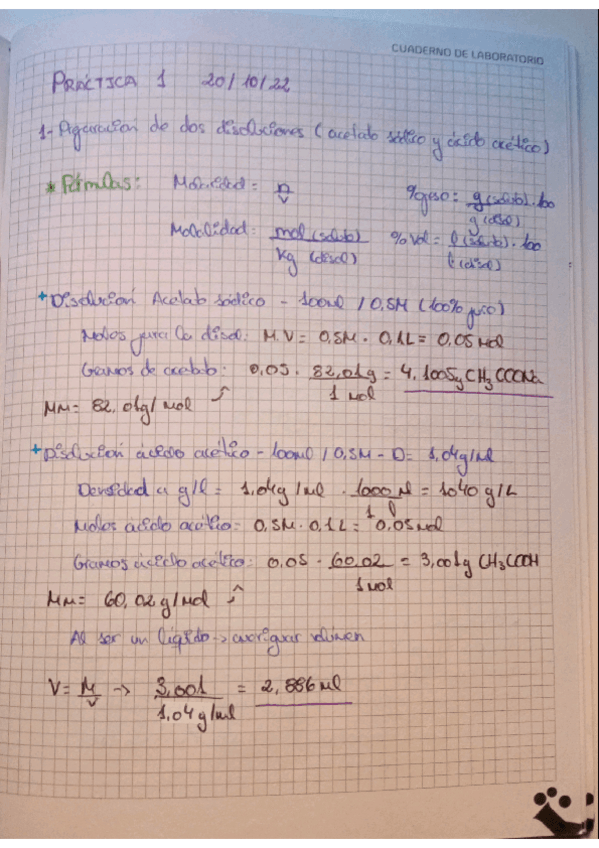 CUADERNO DE LABORATORIO
PRÁCTICA 1 20/10/22
1- Preparación de dos disoluciones (acetato sódico y ácido acético)
* Fórmulas: Molaridad = n/V %peso = g(soluto)·100/g(disol)
Molalidad = mol(soluto)/kg(disol) %Vol = l(soluto)·100/l(disol)
+ Disolución Acetato sódico - 100ml / 0,5M (100% puro)
Moles para la disol: M·V = 0,5M · 0,1L = 0,05 mol
Gramos de acetato: 0,05 · 82,01g/1 mol = 4,1005g CH3COONa
MM = 82,01g/mol
+ Disolución ácido acético - 100ml / 0,5M - D = 1,04g/ml
Densidad a g/l = 1,04g/ml · 1000 ml/1 l = 1040 g/L
Moles ácido acético = 0,5M · 0,1L = 0,05 mol
Gramos ácido acético: 0,05 · 60,02/1 mol = 3,001g CH3COOH
MM = 60,02 g/mol
Al ser un líquido → averiguar volumen
V = M/V → 3,001/1,04g/ml = 2,886 ml